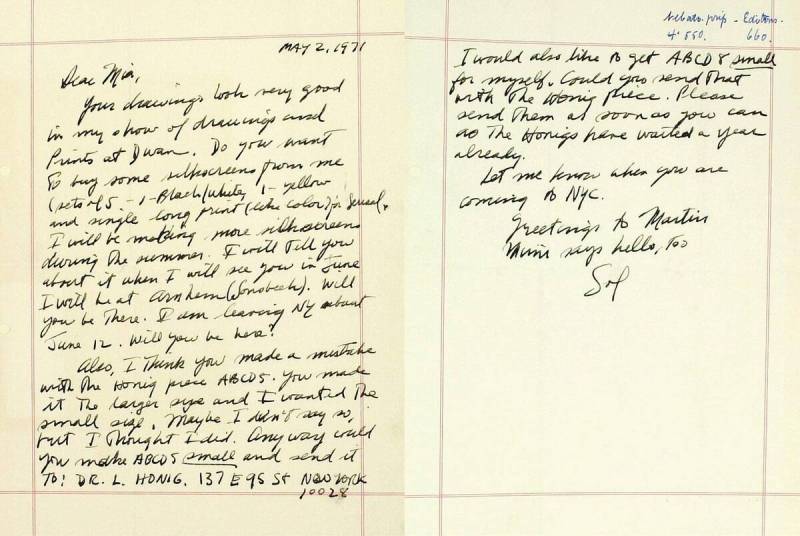 MAY 2, 1971
Dear Mia,
Your drawings look very good
in my show of drawings and
Prints at Dwan. Do you want
to buy some silkscreens from me
(sets of 5 - 1-Black/white, 1-yellow
and single long print (like color) for
I will be making more silkscreens
during the summer. I will tell you
about it when I will see you in June
I will be at Arnhem (Sonsbeek). Will
you be there. I am leaving NY about
June 12. Will you be here?
Also, I think you made a mistake
with the Honig piece ABCD5. You made
it the larger size and I wanted the
small size. Maybe I didn't say so,
but I thought I did. Anyway could
you make ABCD5 small and send it
To: DR. L. HONIG. 137 E 95 St NEW YORK
10028
- Editions.
4. 550. 660.
I would also like to get ABCD8 small
for myself. Could you send that
with the Honig piece. Please
send them as soon as you can
as the Honigs have waited a year
already.
Let me know when you are
coming to NYC.
Greetings to Martin
Mimi says hello, too
Sol